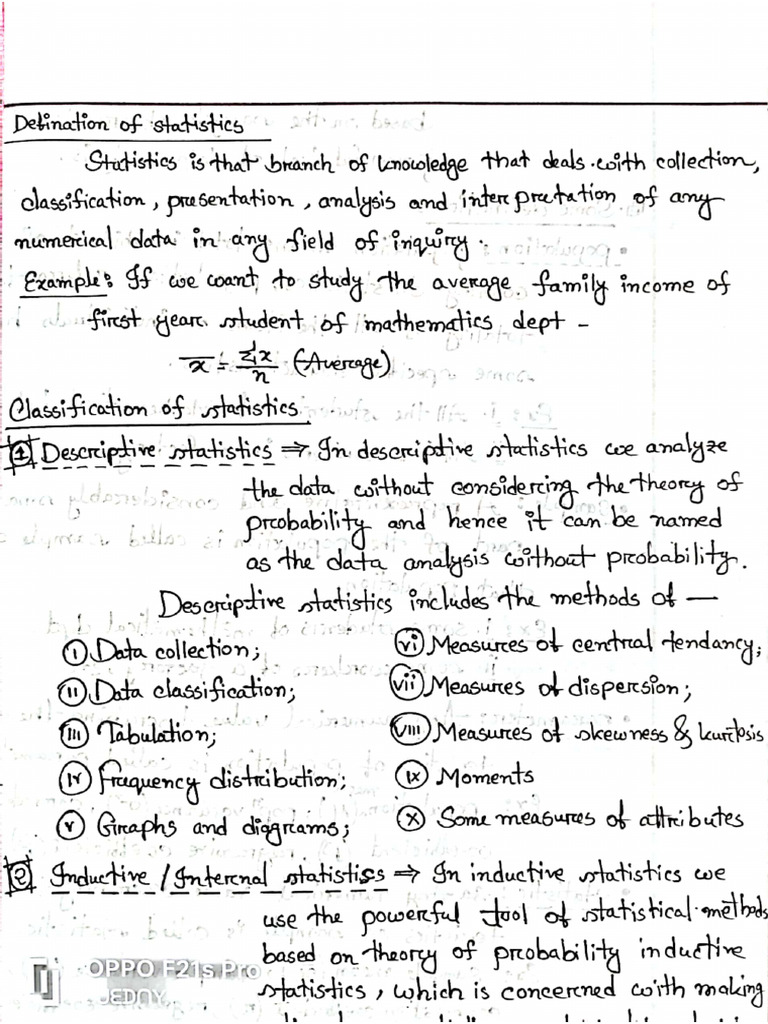 Defination of statistics
Statistics is that branch of knowledge that deals with collection,
classification, presentation, analysis and interpretation of any
numerical data in any field of inquiry.
Example: If we want to study the average family income of
first year student of mathematics dept -
x̄ = Σx/n (Average)
Classification of statistics
1 Descriptive statistics ⇒ In descriptive statistics we analyze
the data without considering the theory of
probability and hence it can be named
as the data analysis without probability.
Descriptive statistics includes the methods of —
(i) Data collection;
(ii) Data classification;
(iii) Tabulation;
(iv) frequency distribution;
(v) Graphs and diagrams;
(vi) Measures of central tendancy;
(vii) Measures of dispersion;
(viii) Measures of skewness & kurtosis
(ix) Moments
(x) Some measures of attributes
2 Inductive / Internal statistiss ⇒ In inductive statistics we
use the powerful tool of statistical methods
based on theory of probability inductive
statistics, which is concerned with making
OPPO F21s Pro
JEDNY